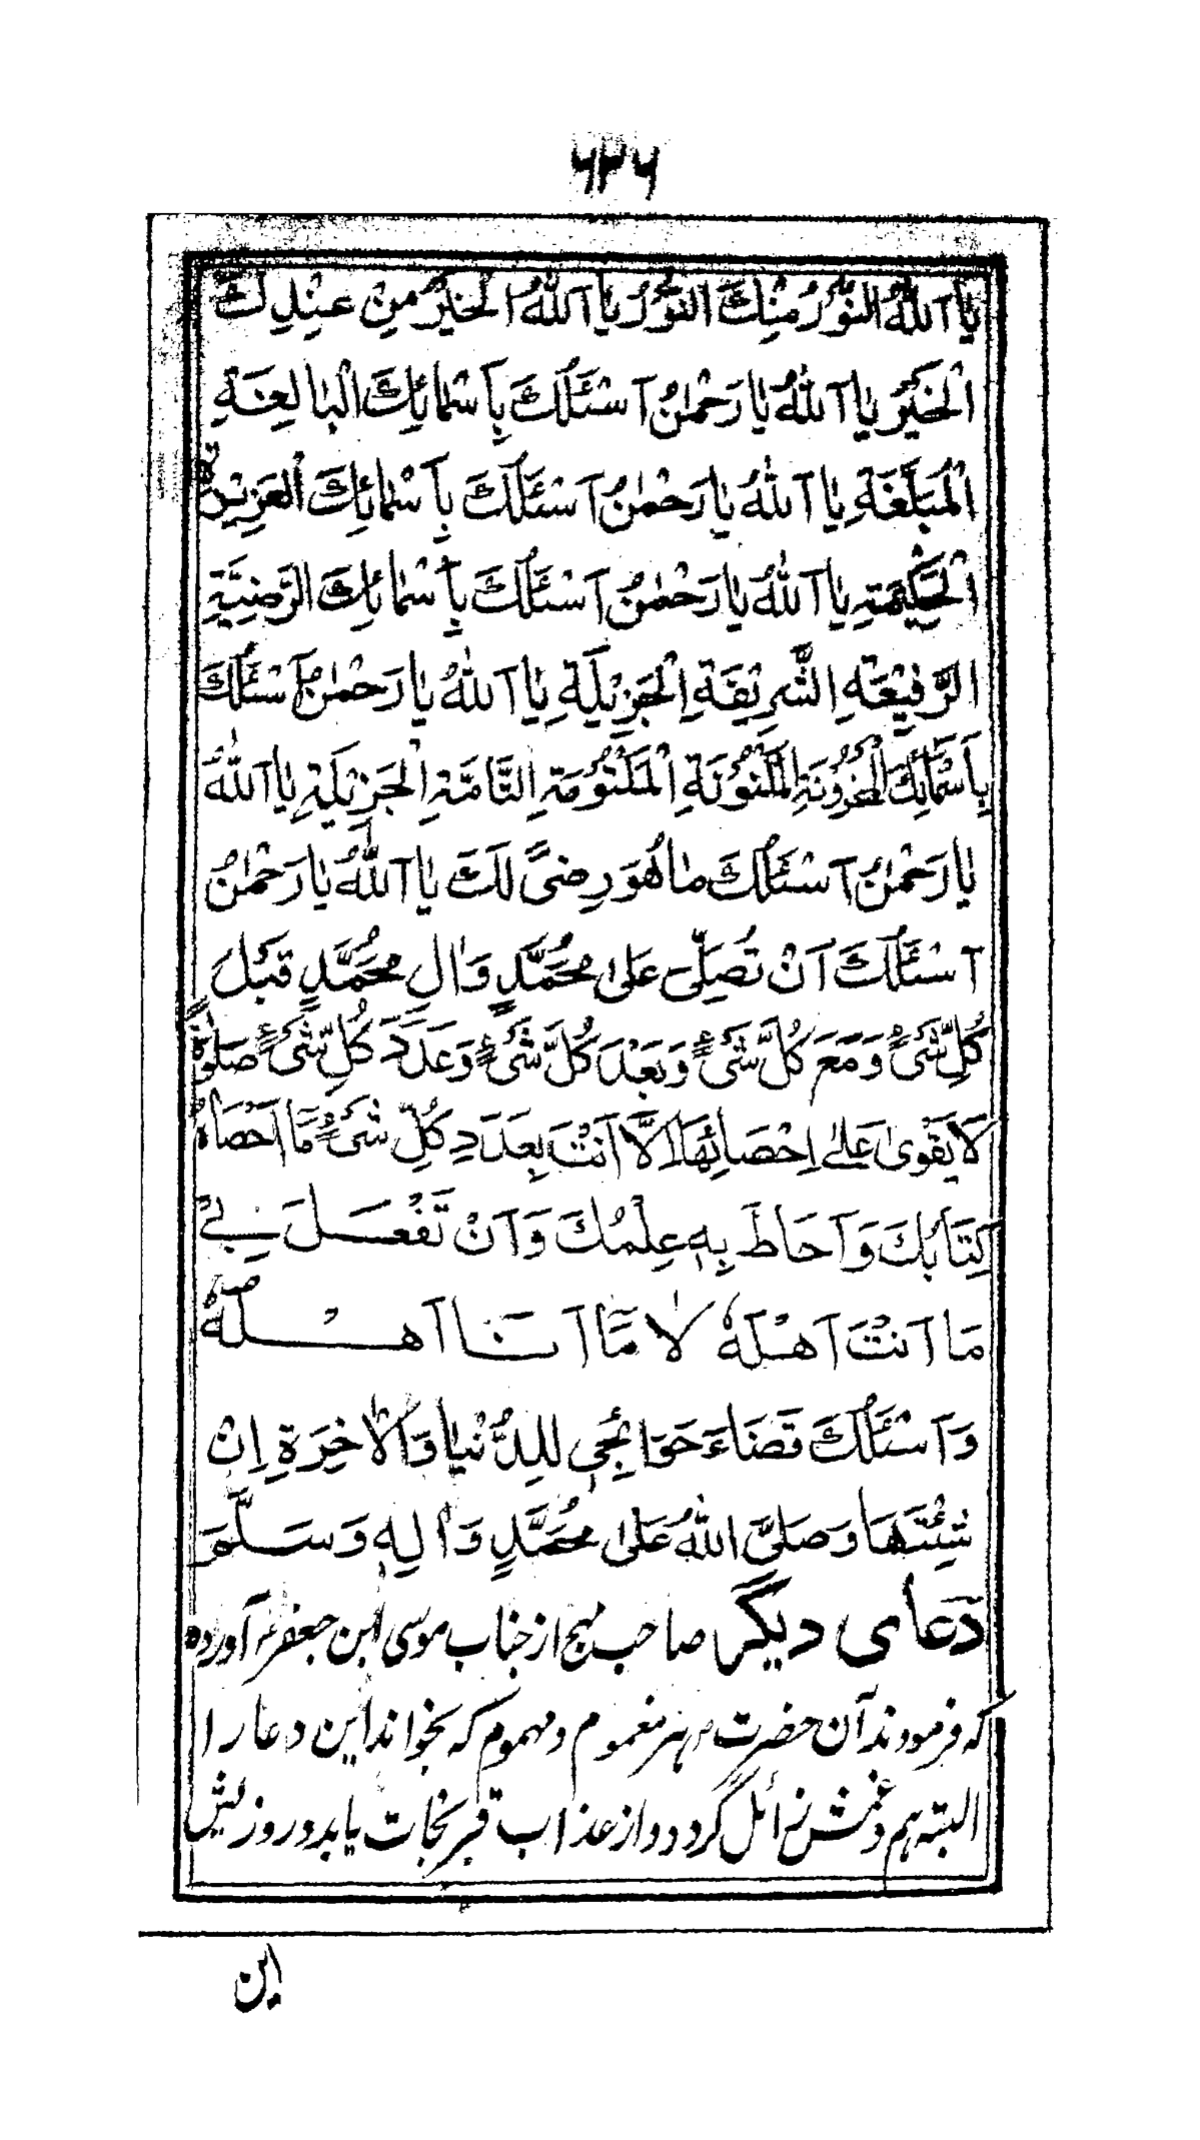 ۶۳۶
یا اَللهُ النُّوْرُ مِنْكَ النُّوْرُ یا اَللهُ الْخَیْرُ مِنْ عِنْدِكَ
الْخَیْرُ یا اَللهُ یا رَحْمٰنُ اَسْئَلُكَ بِاَسْمائِكَ الْبالِغَةِ
الْمُبَلَّغَةِ یا اَللهُ یا رَحْمٰنُ اَسْئَلُكَ بِاَسْمائِكَ الْعَزِیْزَةِ
الْحَكِیْمَةِ یا اَللهُ یا رَحْمٰنُ اَسْئَلُكَ بِاَسْمائِكَ الرَّضِیَّةِ
الرَّفِیْعَةِ الشَّرِیْفَةِ الْجَزِیْلَةِ یا اَللهُ یا رَحْمٰنُ اَسْئَلُكَ
بِاَسْمَائِكَ الْمَخْزُوْنَةِ الْمَكْنُوْنَةِ الْمَكْتُوْمَةِ التَّامَّةِ الْجَزِیْلَةِ یا اَللهُ
یا رَحْمٰنُ اَسْئَلُكَ ما هُوَ رِضیً لَكَ یا اَللهُ یا رَحْمٰنُ
اَسْئَلُكَ اَنْ تُصَلِّیَ عَلیٰ مُحَمَّدٍ وَاٰلِ مُحَمَّدٍ قَبْلَ
كُلِّ شَیْءٍ وَمَعَ كُلِّ شَیْءٍ وَبَعْدَ كُلِّ شَیْءٍ وَعَدَدَ كُلِّ شَیْءٍ صَلٰوةً
لَا یَقْویٰ عَلیٰ اِحْصَائِهَا اِلَّا اَنْتَ بِعَدَدِ كُلِّ شَیْءٍ مَّا اَحْصَاهُ
كِتَابُكَ وَاَحَاطَ بِهٖ عِلْمُكَ وَاَنْ تَفْعَلَ بِیْ
مَا اَنْتَ اَهْلُهٗ لَا مَّا اَنَا اَهْلُهٗ
وَاَسْئَلُكَ قَضَاءَ حَوَائِجِی لِلدُّنْیا وَالْاٰخِرَةِ اِنْ
شِئْتَهَا وَصَلیَّ اللهُ عَلیٰ مُحَمَّدٍ وَاٰلِهٖ وَسَلَّمَ
دعای دیگر صاحب مهج از جناب موسی ابن جعفرؑ آورده
که فرمودند آن حضرت هر مغموم و مهموم که بخواند این دعا را
البته هم و غمش زائل گردد و از عذاب قبر نجات یابد و روزیش
این